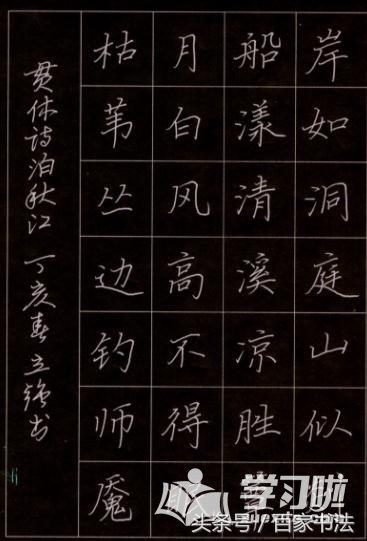 岸如洞庭山似
船漾清溪凉胜
月白风高不得
枯苇丛边钓师魇
贯休诗泊秋江 丁亥春 立强书
学习啦
头条号/百家书法